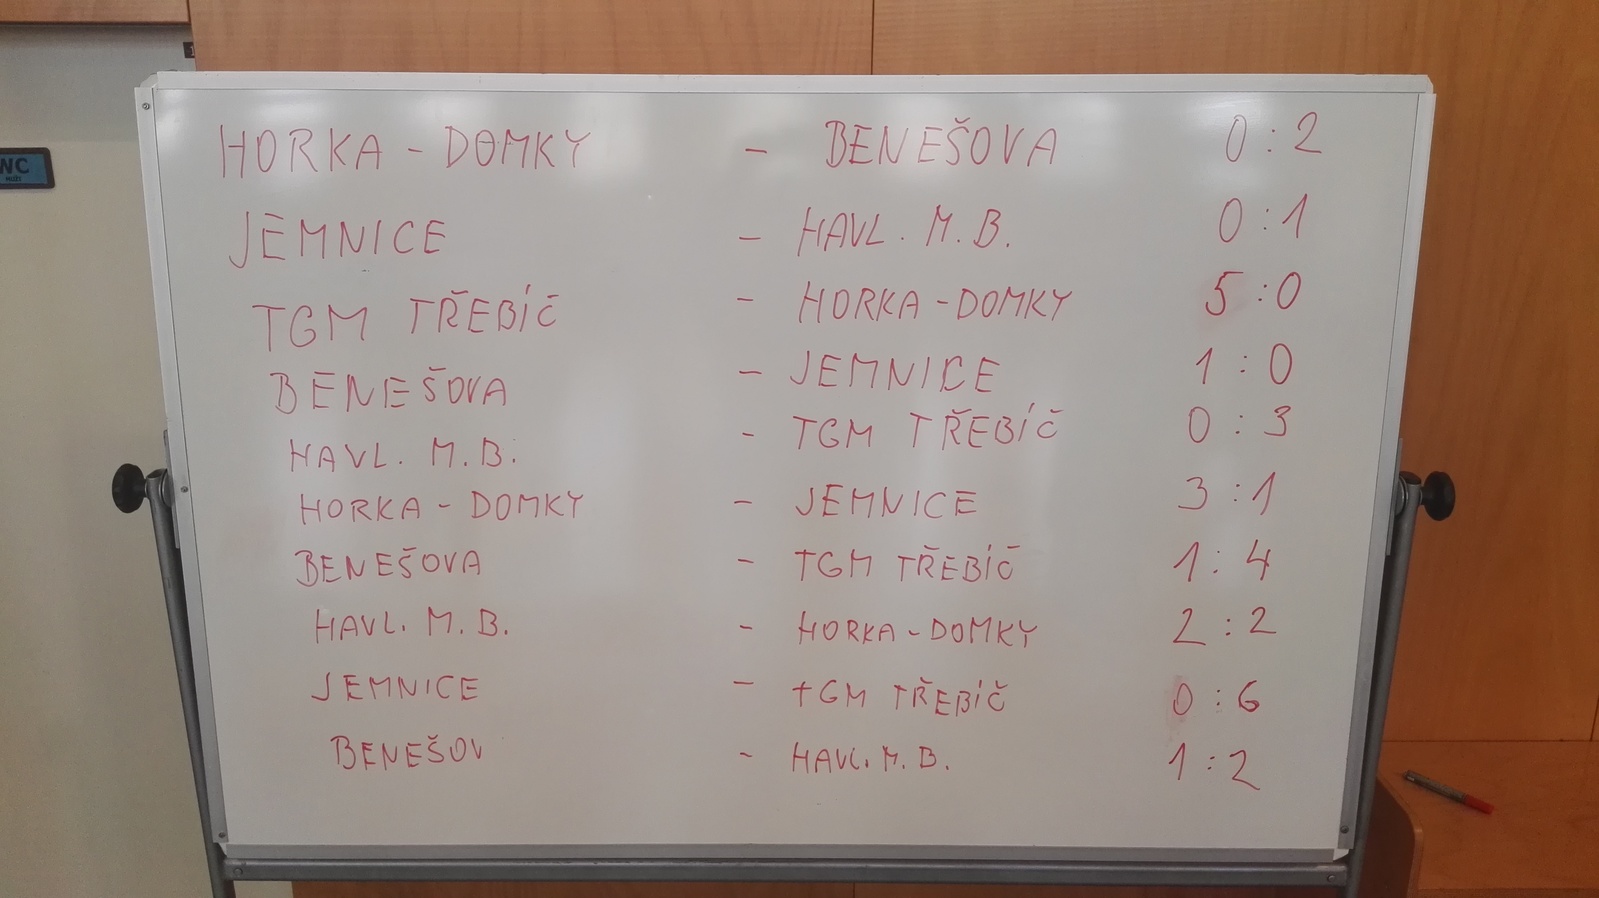 NC
MUŽI
HORKA - DOMKY - BENEŠOVA 0 : 2
JEMNICE - HAVL. M. B. 0 : 1
TGM TŘEBÍČ - HORKA - DOMKY 5 : 0
BENEŠOVA - JEMNICE 1 : 0
HAVL. M. B. - TGM TŘEBÍČ 0 : 3
HORKA - DOMKY - JEMNICE 3 : 1
BENEŠOVA - TGM TŘEBÍČ 1 : 4
HAVL. M. B. - HORKA - DOMKY 2 : 2
JEMNICE - TGM TŘEBÍČ 0 : 6
BENEŠOV - HAVL. M. B. 1 : 2